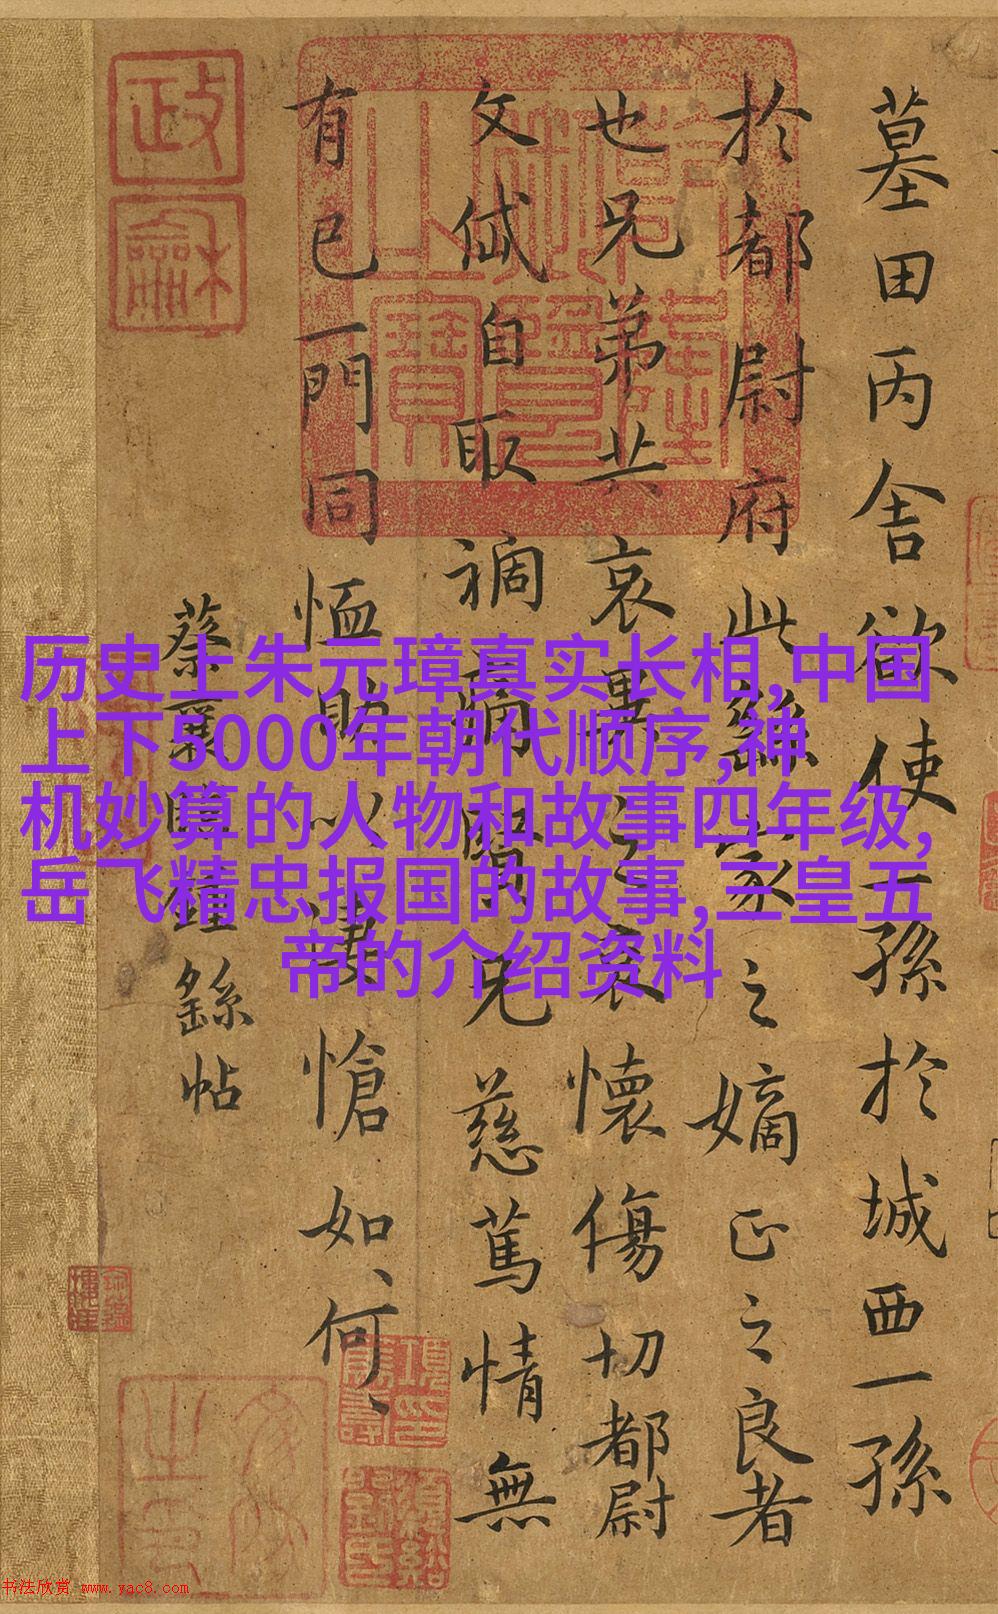 墓田丙舍欲使一孫於城西一孫
於都尉府此繇家之嫡正之良者
也兄弟共哀異之哀懷傷切都尉
文自取禍痛賢兄慈篤情無
有已一門同恤助以悽愴如何
蔡襄臨鍾繇帖
政龢
历史上朱元璋真实长相,中国
上下5000年朝代顺序,神
机妙算的人物和故事四年级,
岳飞精忠报国的故事,三皇五
帝的介绍资料
书法欣赏 www.yac8.com